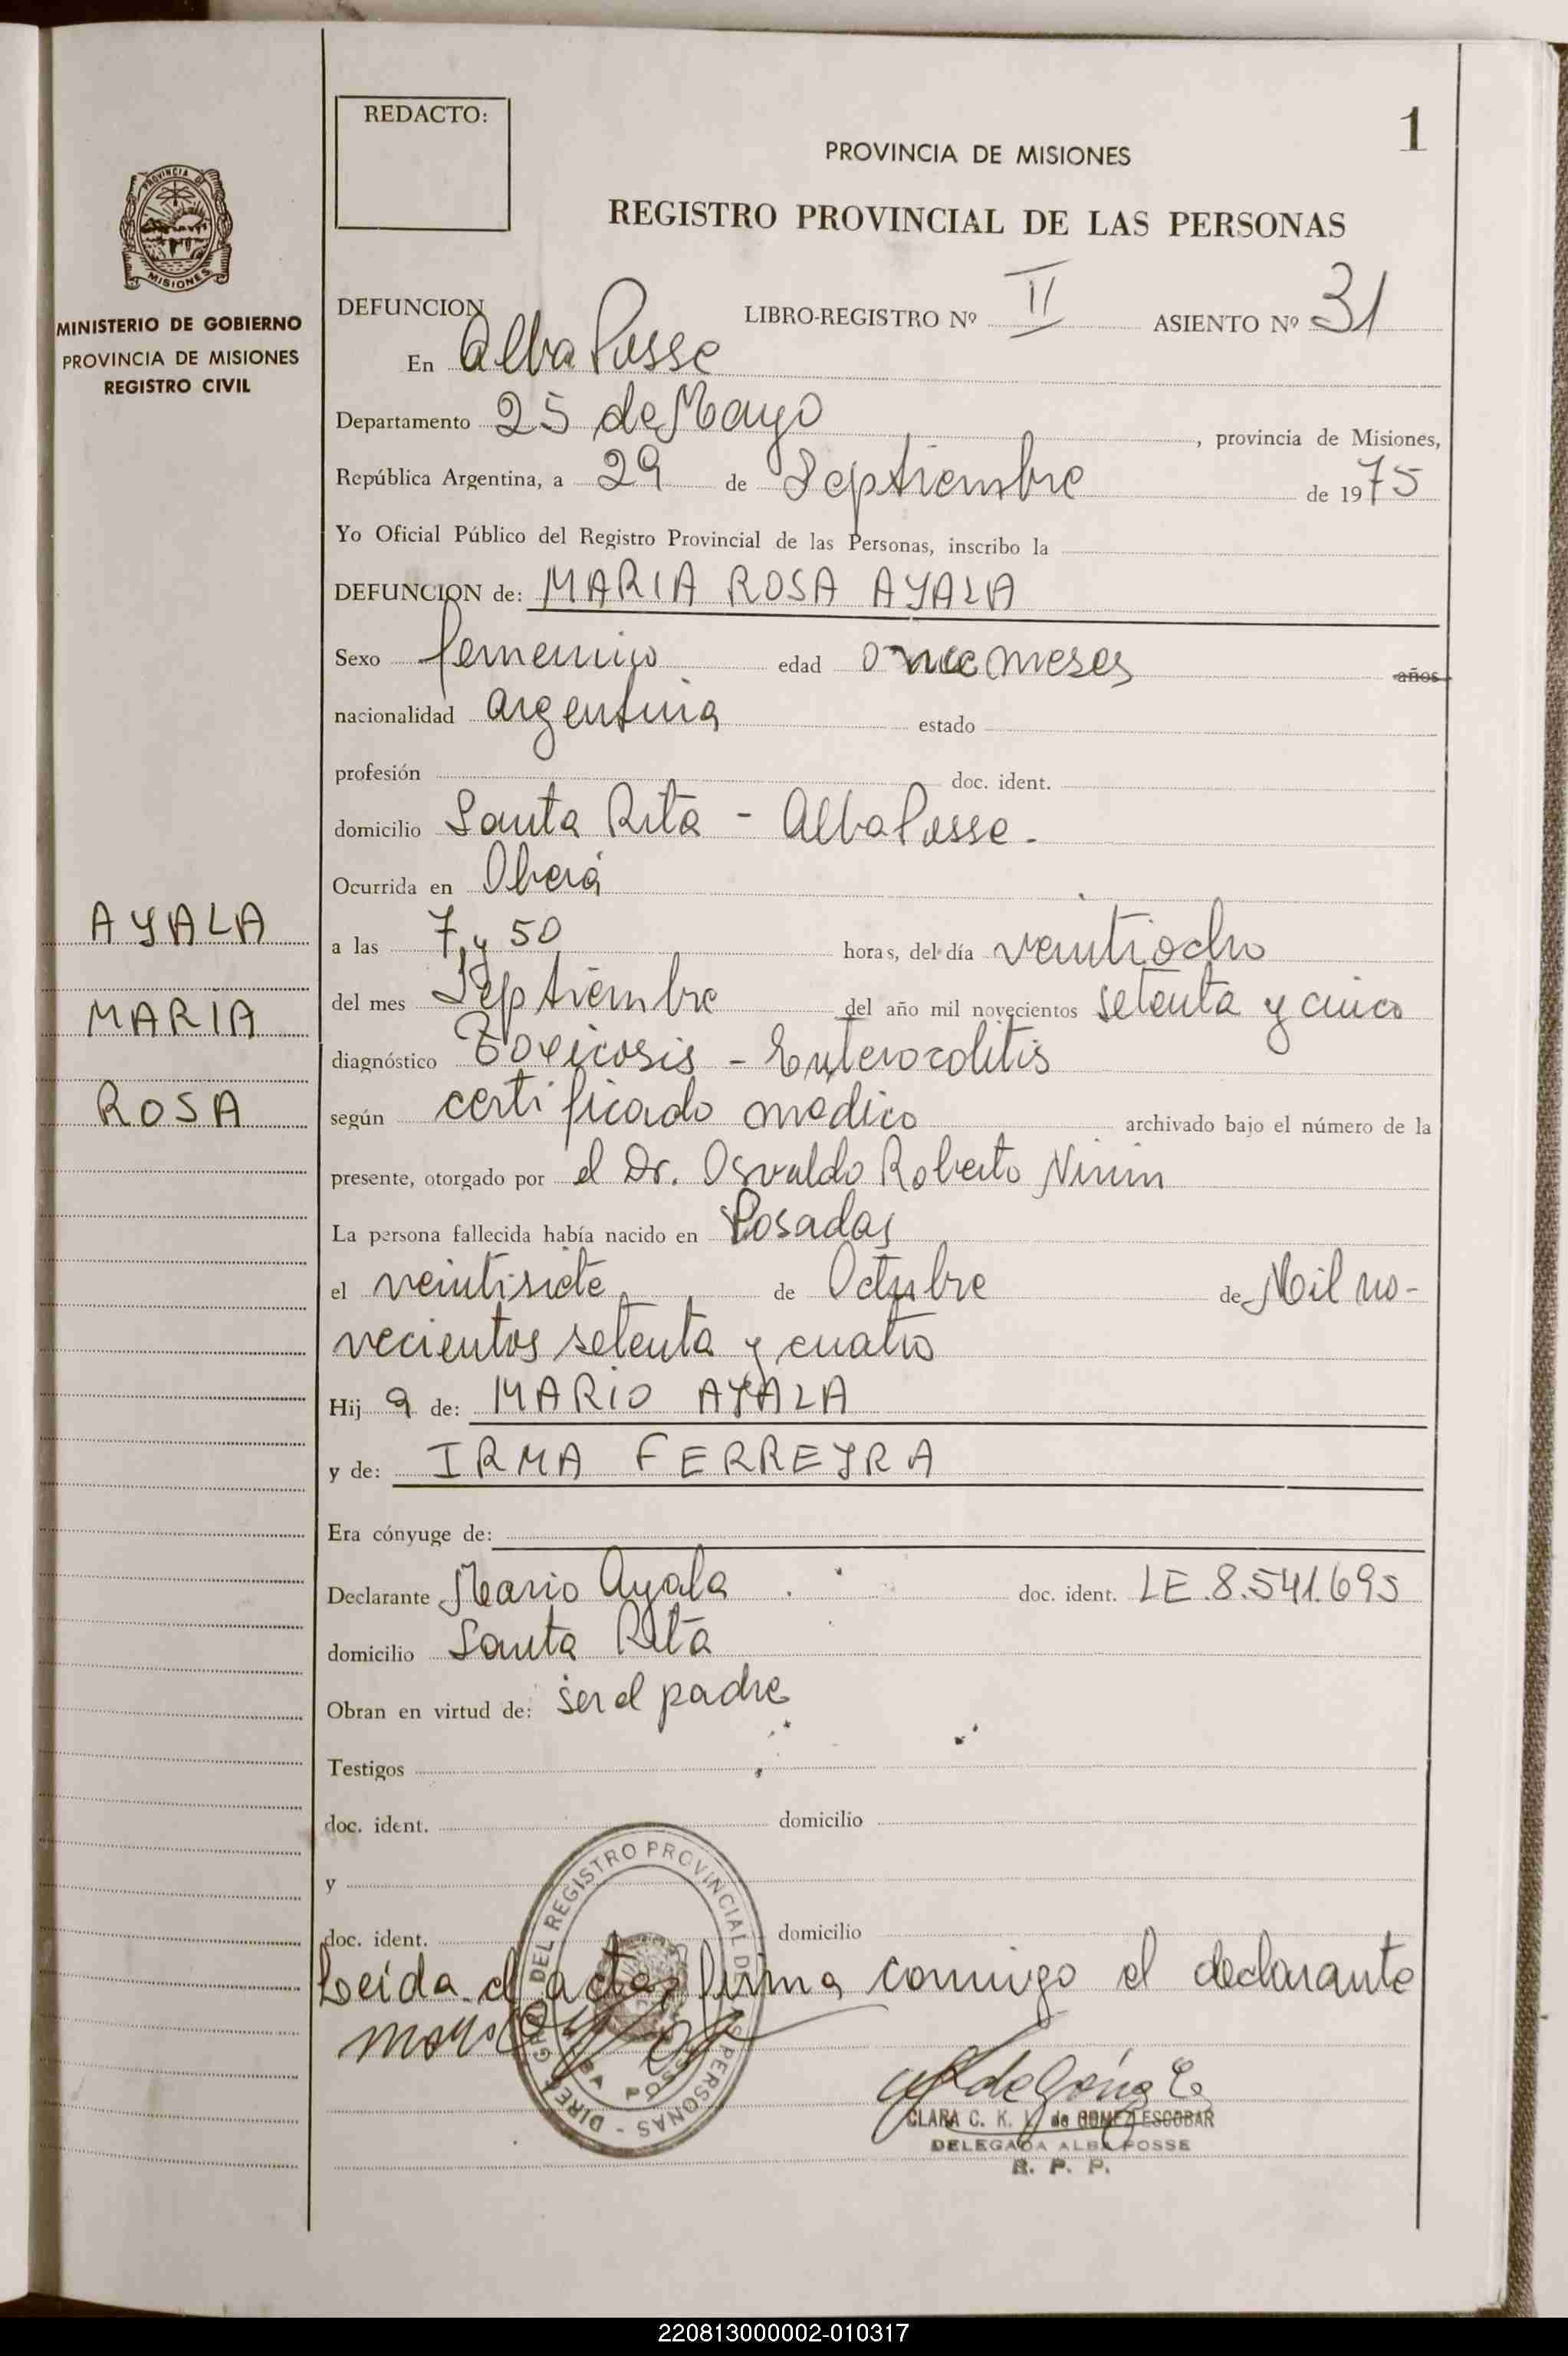 REDACTO:
1
PROVINCIA DE MISIONES
REGISTRO PROVINCIAL DE LAS PERSONAS
PROVINCIA DE
MISIONES
MINISTERIO DE GOBIERNO
PROVINCIA DE MISIONES
REGISTRO CIVIL
DEFUNCION LIBRO-REGISTRO Nº II ASIENTO Nº 31
En Alba Posse
Departamento 25 de Mayo, provincia de Misiones,
República Argentina, a 29 de Septiembre de 1975
Yo Oficial Público del Registro Provincial de las Personas, inscribo la
DEFUNCION de: MARIA ROSA AYALA
Sexo femenino edad once meses años
nacionalidad argentina estado
profesión doc. ident.
domicilio Santa Rita - Alba Posse.
Ocurrida en Oberá
AYALA
a las 7 y 50 horas, del día veintiocho
del mes Septiembre del año mil novecientos setenta y cinco
MARIA
diagnóstico Toxicosis - Enterocolitis
ROSA
según certificado medico archivado bajo el número de la
presente, otorgado por el Dr. Osvaldo Roberto
La persona fallecida había nacido en Posadas
el veintisiete de Octubre de Mil no-
vecientos setenta y cuatro
Hija de: MARIO AYALA
y de: IRMA FERREYRA
Era cónyuge de:
Declarante Mario Ayala doc. ident. LE.8.541.695
domicilio Santa Rita
Obran en virtud de: ser el padre
Testigos
doc. ident. domicilio
y
doc. ident. domicilio
Leida el acta, firma conmigo el declarante
DEL REGISTRO PROVINCIAL DE PERSONAS - DIREC GRAL
BA POSSE
CLARA C. K. de GOMEZ ESCOBAR
DELEGADA ALBA POSSE
R. P. P.
220813000002-010317